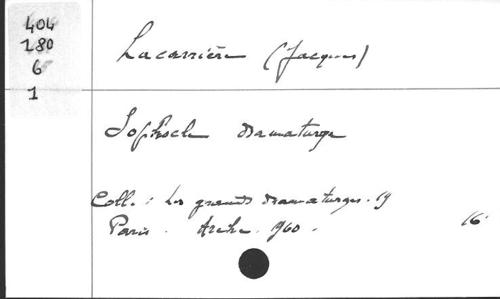 404
180
6
1
Lacarrière (Jacques)
Sophocle dramaturge
Coll. : Les grands dramaturges. 19
Paris. Arche. 960.
16°